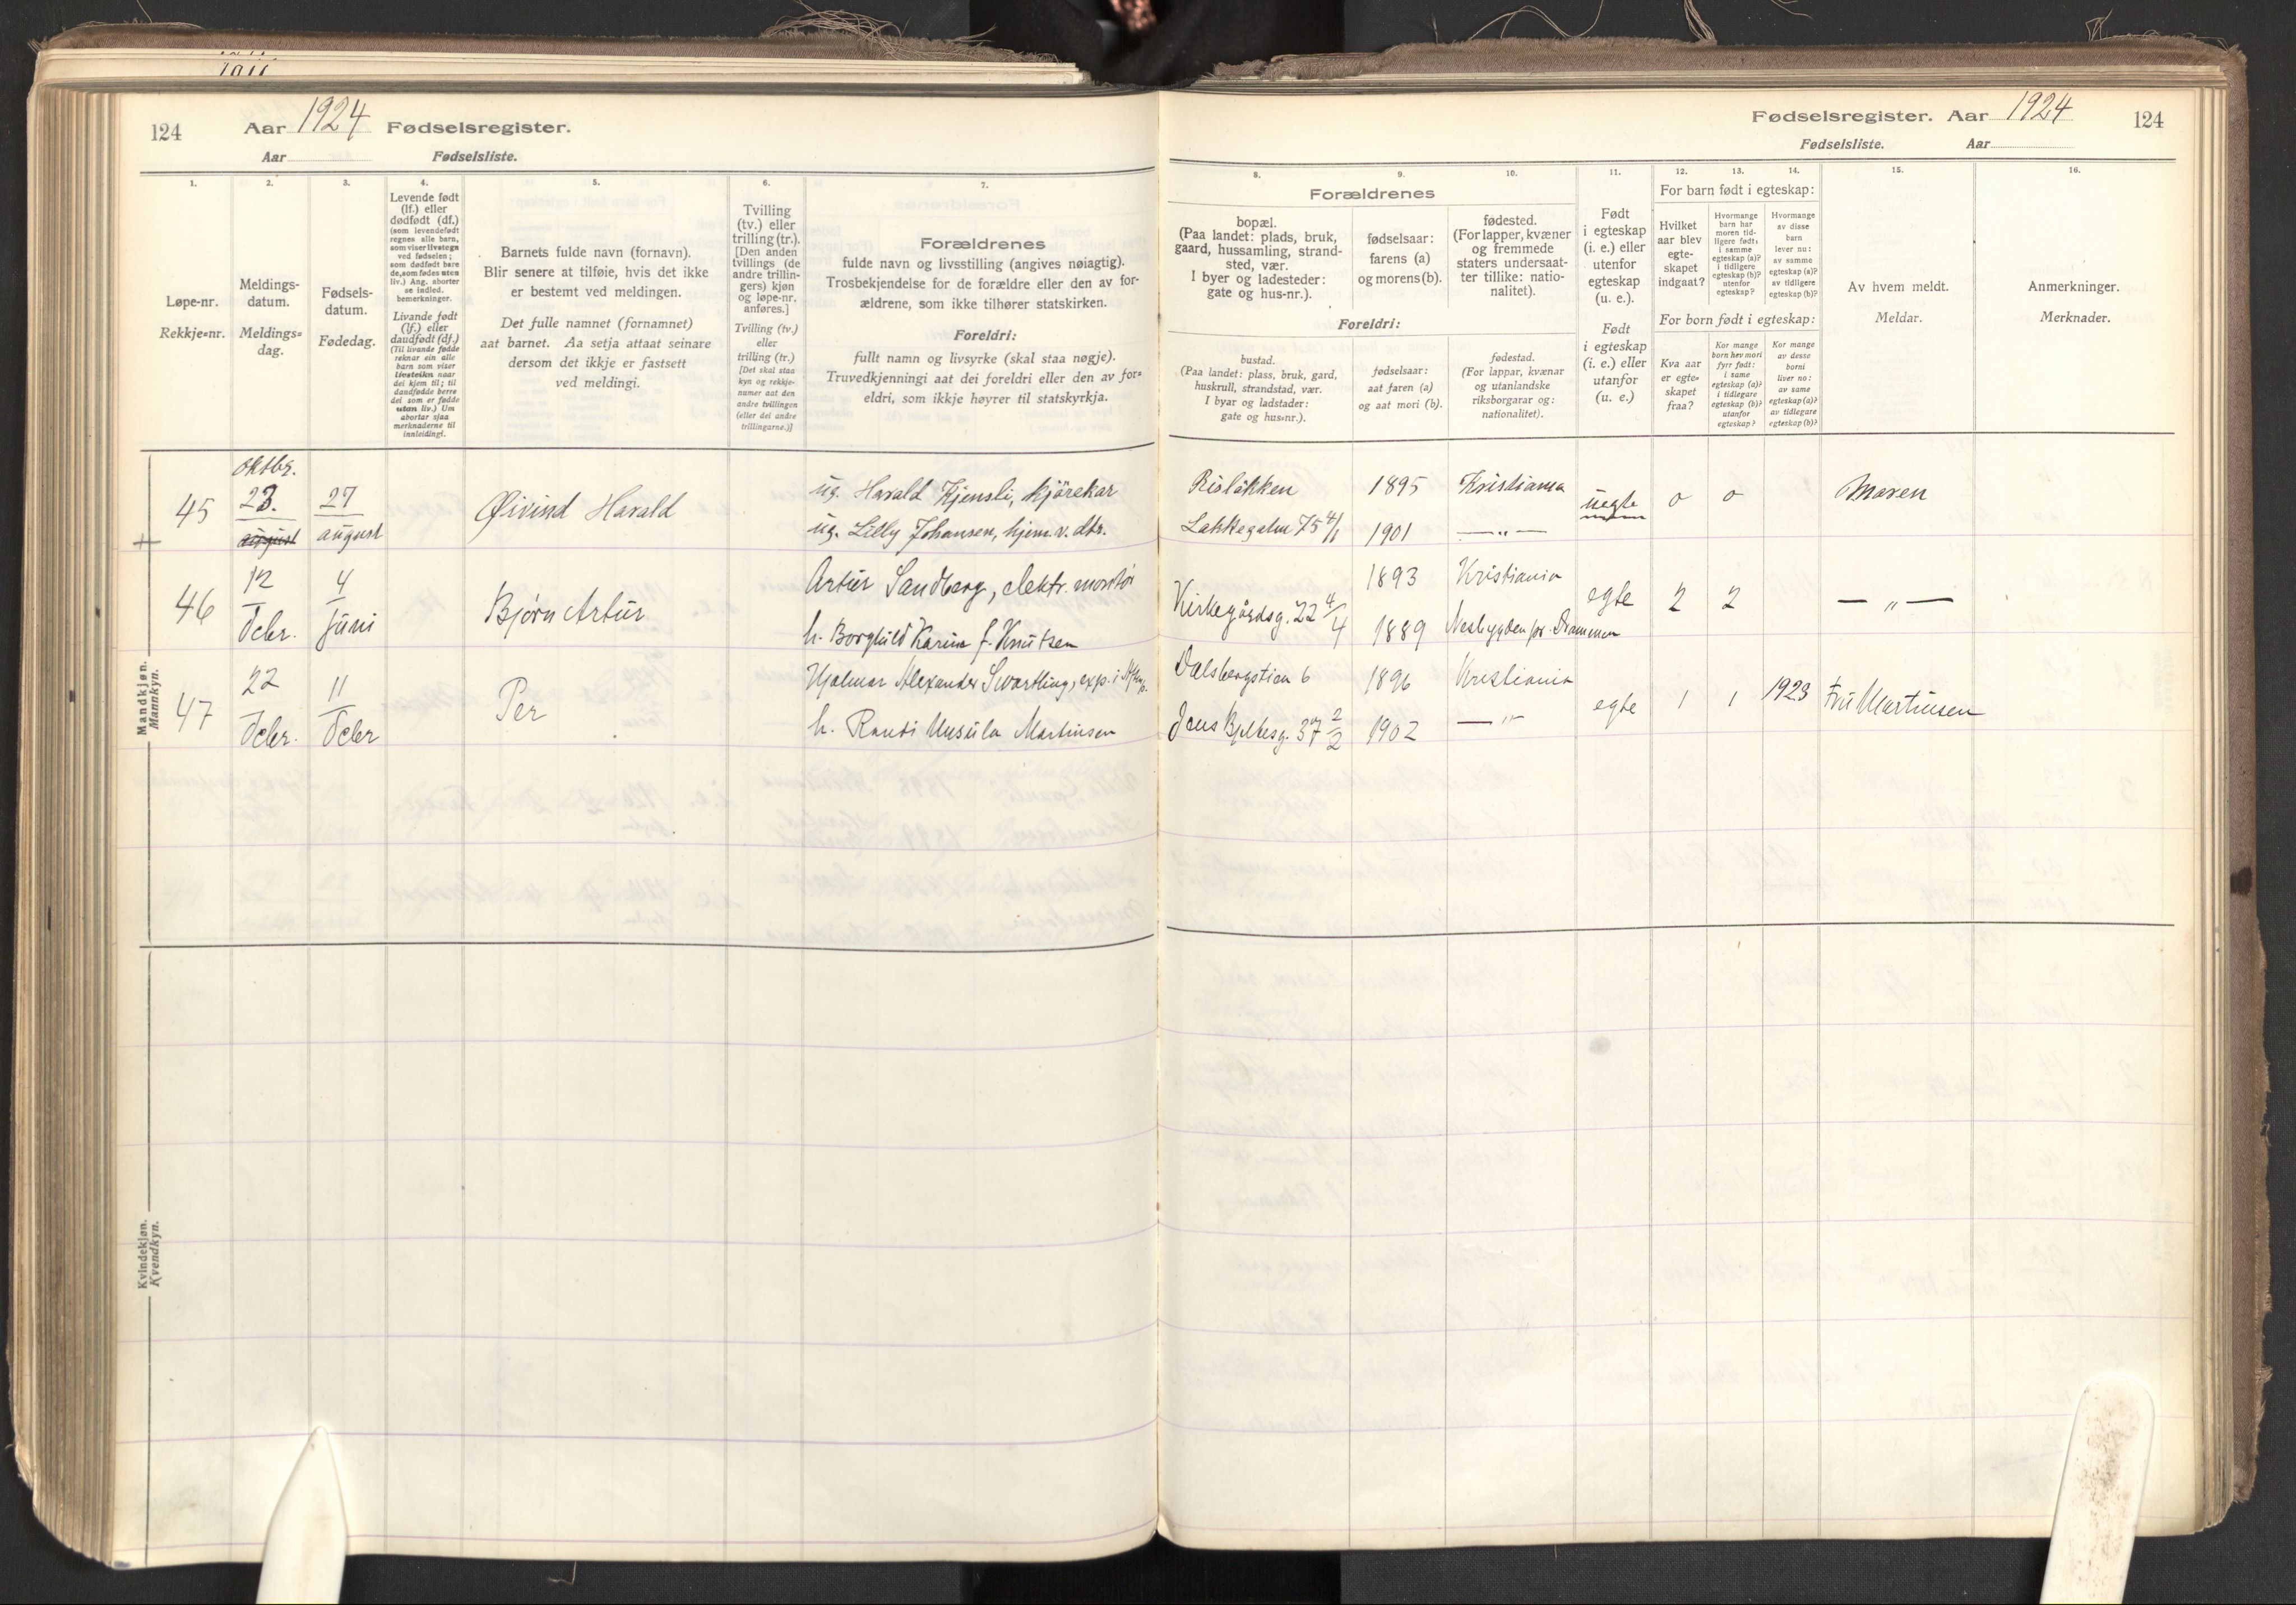 124
Aar 1924 Fødselsregister.
Aar Fødselsliste.
1.
2.
3.
4.
5.
6.
7.
Løpe-nr.
Rekkje=nr.
Meldings-
datum.
Meldings=
dag.
Fødsels-
datum.
Fødedag.
Levende født
(lf.) eller
dødfødt (df.)
(som levendefødt
regnes alle barn,
som viser livstegn
ved fødselen;
som dødfødt bare
de, som fødes uten
liv.) Ang. aborter
se indled.
bemerkninger.
Livande født
(lf.) eller
daudfødt (df.)
(Til livande fødde
reknar ein alle
barn som viser
livsteikn naar
dei kjem til; til
daudfødde berre
dei som er fødde
utan liv.) Um
abortar sjaa
merknaderne til
innleidingi.
Barnets fulde navn (fornavn).
Blir senere at tilføie, hvis det ikke
er bestemt ved meldingen.
Det fulle namnet (fornamnet)
aat barnet. Aa setja attaat seinare
dersom det ikkje er fastsett
ved meldingi.
Tvilling
(tv.) eller
trilling (tr.).
[Den anden
tvillings (de
andre trillin-
gers) kjøn
og løpe-nr.
anføres.]
Tvilling (tv.)
eller
trilling (tr.)
[Det skal staa
kyn og rekkje-
numer aat den
andre tvillingen
(eller dei andre
trillingarne.)]
Forældrenes
fulde navn og livsstilling (angives nøiagtig).
Trosbekjendelse for de forældre eller den av for-
ældrene, som ikke tilhører statskirken.
Foreldri:
fullt namn og livsyrke (skal staa nøgje).
Truvedkjenningi aat dei foreldri eller den av for=
eldri, som ikkje høyrer til statskyrkja.
Mandkjøn.
Mannkyn.
45
oktbr.
23.
august
27
august
Øivind Harald
ug. Harald Kjensli, kjørekar
ug. Lilly Johansen, hjem.v. dtr.
46
12
Dcbr.
4
Juni
Bjørn Artur
Artur Sandberg, elektr. montør
h. Borghild Karin f. Knutsen
47
22
Dcbr.
11
Dcbr
Per
Hjalmar Alexander Swartling, exp. i
h. Randi Ursula Martinsen
Kvindekjøn.
Kvendkyn.
Fødselsregister. Aar 1924
124
Fødselsliste. Aar
8.
9.
10.
11.
12.
13.
14.
15.
16.
Forældrenes
bopæl.
(Paa landet: plads, bruk,
gaard, hussamling, strand-
sted, vær.
I byer og ladesteder:
gate og hus-nr.).
fødselsaar:
farens (a)
og morens (b).
fødested.
(For lapper, kvæner
og fremmede
staters undersaat-
ter tillike: natio-
nalitet).
Foreldri:
bustad.
(Paa landet: plass, bruk, gard,
huskrull, strandstad, vær.
I byar og ladstader:
gate og hus=nr.).
fødselsaar:
aat faren (a)
og aat mori (b).
fødestad.
(For lappar, kvænar
og utanlandske
riksborgarar og:
nationalitet).
Født
i egteskap
(i. e.) eller
utenfor
egteskap
(u. e.).
Født
i egteskap
(i. e.) eller
utanfor
(u. e.)
For barn født i egteskap:
Hvilket
aar blev
egte-
skapet
indgaat?
Hvormange
barn har
moren tid-
ligere født:
i samme
egteskap (a)?
i tidligere
egteskap (b)?
utenfor
egteskap?
Hvormange
av disse
barn
lever nu:
av samme
egteskap (a)?
av tidligere
egteskap (b)?
For born født i egteskap:
Kva aar
er egte-
skapet
fraa?
Kor mange
born hev mori
fyrr født:
i same
egteskap (a)?
i tidlegare
egteskap (b)?
utanfor
egteskap?
Kor mange
av desse
borni
liver no:
av same
egteskap (a)?
av tidlegare
egteskap (b)?
Av hvem meldt.
Meldar.
Anmerkninger.
Merknader.
Risløkken
1895
Kristiania
uegte
0
0
Moren
Lakkegaten 75 4/1
1901
— " —
Kirkegårdsg. 22 4/4
1893
Kristiania
egte
2
2
— " —
1889
Nesbygden pr. Drammen
Dalsbergstien 6
1896
Kristiania
egte
1
1
1923
Fru Martinsen
Jens Bjelkesg. 37 2/2
1902
— " —